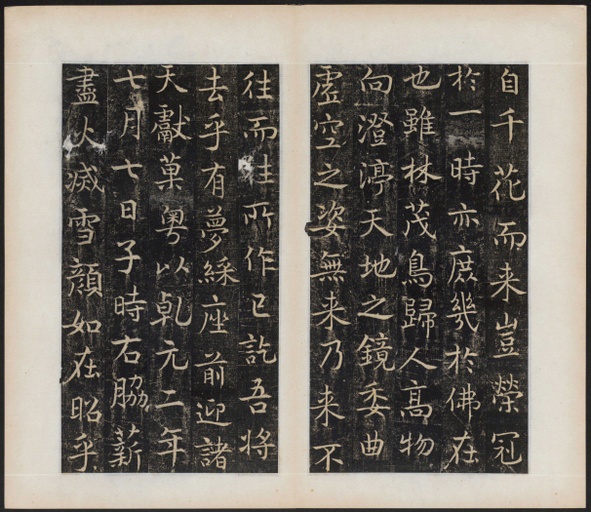 自千花而来豈榮冠
於一時亦庶幾於佛在
也雖林茂鳥歸人髙物
向澄渟天地之鏡委曲
虛空之姿無来乃来不
往而往所作已訖吾将
去乎有夢綵座前迎諸
天獻菓粤以乹元二年
七月七日子時右脇薪
盡火滅雪顔如在昭乎